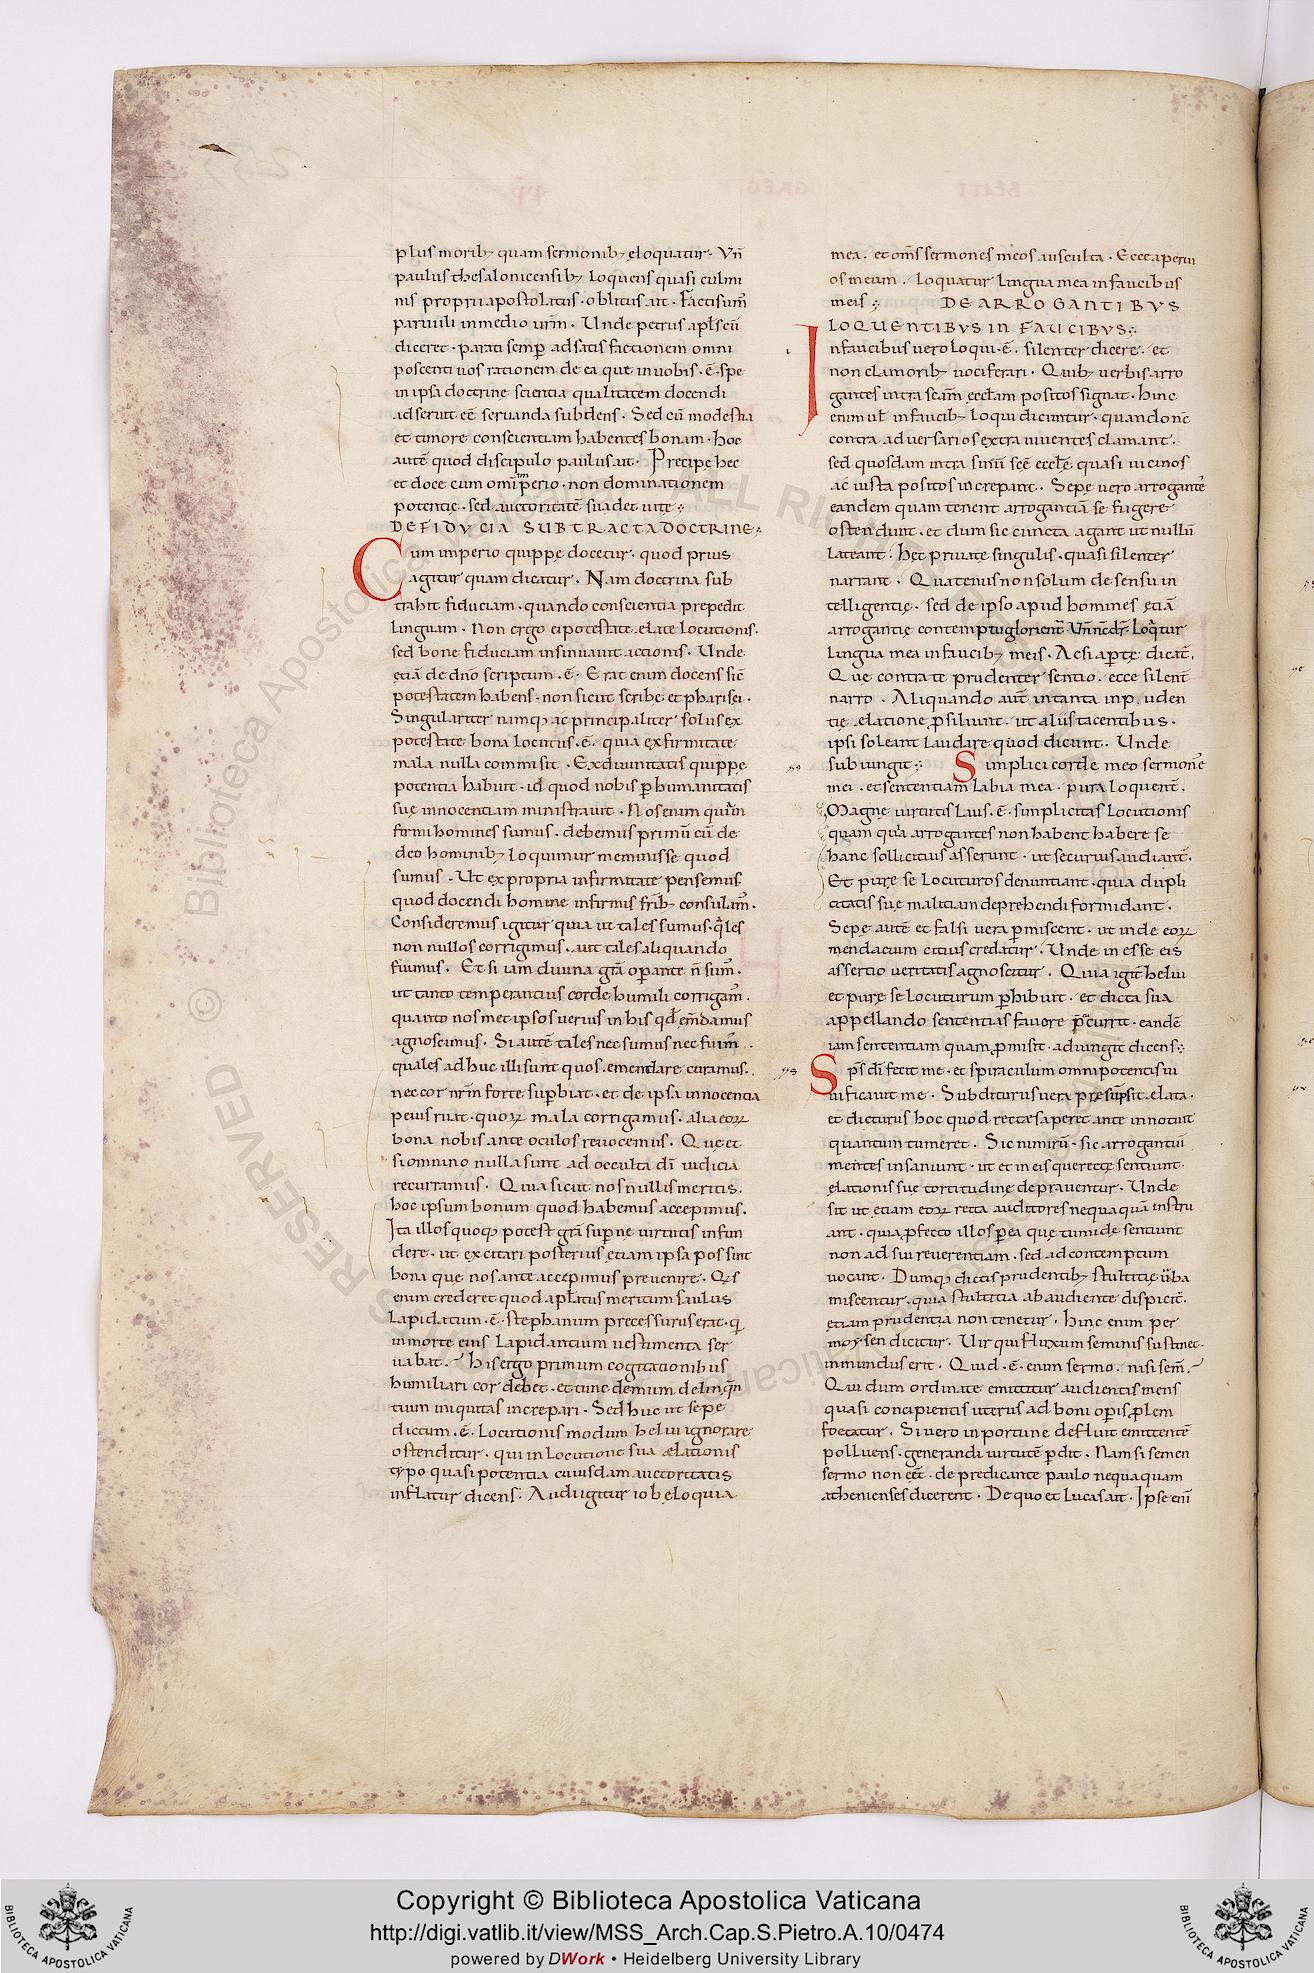 plus morib; quam sermonib; eloquatur. Vñ
paulus thesalonicensib; loquens quasi culmi
nis proprii apostolatus. oblitus ait. Facti sum̃
paruuli in medio ur̃m. Unde petrus apl̃s cũ
diceret. parati semp̱ ad satis factionem omni
poscenti uos rationem de ea que in uobis .ẽ. spe
in ipsa doctrine scientia qualitatem docendi
adseruit eẽ seruanda subdens. Sed cũ modestia
et timore conscientiam habentes bonam. hoc
autẽ quod discipulo paulus ait. Precipe hec
et doce cum omĩ imperio. non dominationem
potentię. sed auctoritatẽ suadet uitę.
DE FIDVCIA SUBTRACTA DOCTRINE.
Cum imperio quippę docetur. quod prius
agitur quam dicatur. Nam doctrina sub
trahit fiduciam. quando conscientia prepedit
linguam. Non ergo ei potestate elate locutionis.
sed bone fiduciam insinuauit accionis. Unde
ętiã de dño scriptum .ẽ. Erat enim docens sic̃
potestatem habens. non sicut scribe et pharisei.
Singulariter namq; ac principaliter solus ex
potestate bona locutus .ẽ. quia ex firmitate
mala nulla commisit. Ex diuinitatis quippę
potentia habuit. id quod nobis p̱ humanitatis
suę innocentiam ministrauit. Nos enim qui in
firmi homines sumus. debemus primũ cũ de
deo hominib; loquimur meminisse quod
sumus. Ut ex propria infirmitate pensemus.
quod docendi homine infirmis frib; consulam̃.
Consideremus igitur quia ut tales sumus. q̃les
non nullos corrigimus. aut tales aliquando
fuimus. Et si iam diuina grã op̱ante ñ sum̃.
ut tanto temperantius corde humili corrigam̃.
quanto nosmet ipsos uerius in his qđ emdamus
agnoscimus. Si autẽ tales nec sumus nec fuim̃.
quales adhuc illi sunt quos emendare curamus.
nec cor nr̃m forte sup̱biat. et de ipsa innocentia
peius ruat. quoꝝ mala corrigamus. alia eoꝝ
bona nobis ante oculos reuocemus. Quę et
si omnino nulla sunt ad occulta dĩ iudicia
recurramus. Quia sicut nos nullis meritis.
hoc ipsum bonum quod habemus accepimus.
Ita illos quoq; potest grã sup̱ne uirtutis infun
dere. ut excitari posterius ętiam ipsa possint
bona que nos ante accepimus preuenire. Q̃s
enim crederet quod apl̃atus meritum saulus
lapidatum .ẽ. stephanum precessurus erat. qui
in morte eius lapidantium uestimenta ser
uabat. His ergo primum cogitationibus
humiliari cor debet. et tunc demum delinq̃n
tium iniquitas increpari. Sed huc ut sepe
dictum .ẽ. locutionis modum heliu ignorare
ostenditur. qui in locutione sua ælationis
typo quasi potentia cuiusdam auctoritatis
inflatur dicens. Audi igitur iob eloquia
mea. et oms̃ sermones meos ausculta. Ecce aperui
os meum. loquatur lingua mea in faucibus
meis. DE ARROGANTIBVS
LOQUENTIBVS IN FAUCIBVS.
In faucibus uero loqui .ẽ. silenter dicere. et
non clamorib; uociferari. Quib; uerbis arro
gantes intra scam̃ eccl̃am positos signat. hinc
enim ul̃ in faucib; loqui dicuntur. quando nẽ
contra aduersarios extra uiuentes clamant.
sed quosdam intra sinũ scẽ eccl̃ę quasi uicinos
ac iuxta positos increpant. Sepę uero arrogante's
eandem quam tenent arrogantiã se fugere
ostendunt. et dum sic cuncta agant ut nullũ
lateant. hęc priuate singulis. quasi silenter
narrant. Quatenus non solum de sensu in
telligentię. sed de ipso apud homines ętiã
arrogantię contemptu glorient̃. Vñ nc̃ dr̃. Loq̃tur
lingua mea in faucib; meis. Ac si ap̱tę dicat̃.
Quę contra te prudenter sentio. ecce silent̃
narro. Aliquando aut̃ in tanta inpruden
tię elatione p̱siliunt. ut aliis tacentibus.
ipsi soleant laudare quod dicunt. Unde
subiungit. Simplici corde meo sermone's
mei. et sententiam labia mea. pura loquent̃.
Magne uirtutis laus .ẽ. simplicitas locutionis
quam quia arrogantes non habent habere se
hanc sollicitius asserunt. ut securius audiant̃.
Et purę se locuturos denuntiant. quia dupli
citatis suę malitiam deprehendi formidant.
Sepę autẽ et falsi uera p̱miscent. ut inde eoꝝ
mendacium citius credatur. Unde in esse eis
assertio ueritatis agnoscitur. Quia igit̃ heliu
et purę se locuturum p̱hibuit. et dicta sua
appellando sententias fauore p̱currit. eandẽ
iam sententiam quam p̱misit. adiungit dicens.
Sp̃s dĩ fecit me. et spiraculum omnipotentis ui
uificauit me. Subditurus uera presũpsit elata.
et dicturus hoc quod recte saperet ante innotuit
quantum tumeret. Sic nimirũ. sic arrogantiũ
mentes insaniunt. ut et in eis que recte sentiunt.
ęlationis suę tortitudinę deprauentur. Unde
fit ut ętiam eoꝝ recta auditores nequaquã instru
ant. quia p̱fecto illos p̱ ea que tumidę sentiunt
non ad sui reuerentiam. sed ad contemptum
uocant. Dumq; dictis prudentib; stultitię ũba
miscentur. quia stultitia ab audiente dispicit̃.
ętiam prudentia non tenetur. hinc enim per
moysen dicitur. Uir qui fluxum seminis sustinet.
inmundus erit. Quid .ẽ. enim sermo. nisi sem̃.
Qui dum ordinate emittitur audientis mens
quasi concipientis uterus ad boni op̱is p̱lem
foetatur. Si uero inportune defluit emittentẽ
polluens. generandi uirtutẽ p̱dit. Nam si semen
sermo non eẽt. de predicante paulo nequaquam
athenienses dicerent. De quo et lucas ait. Ipse eni
Copyright © Biblioteca Apostolica Vaticana
http://digi.vatlib.it/view/MSS_Arch.Cap.S.Pietro.A.10/0474
powered by DWork • Heidelberg University Library